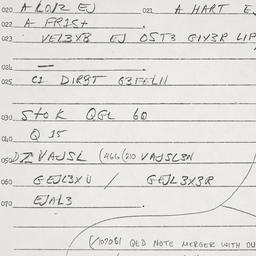 020 A LO12 EJ 021 A HART E
022 A FR1St
023 VEL3XB EJ OST3 GIY3R LIP
024 —
025 C1 DIR8T 63FELN
030 StOK QGL 60
040 Q 15
050 VAJSL (466 (210 VAJSL3N
060 GEJL3XU / GEJL3X3R
070 EJAL3
(/107081 QED NOTE MERGER WITH OU